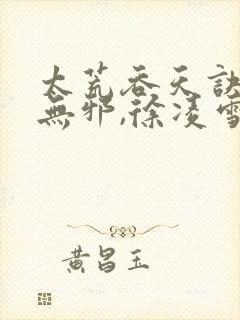 太荒吞天訣
無邪,徐凌雪
黃昌玉